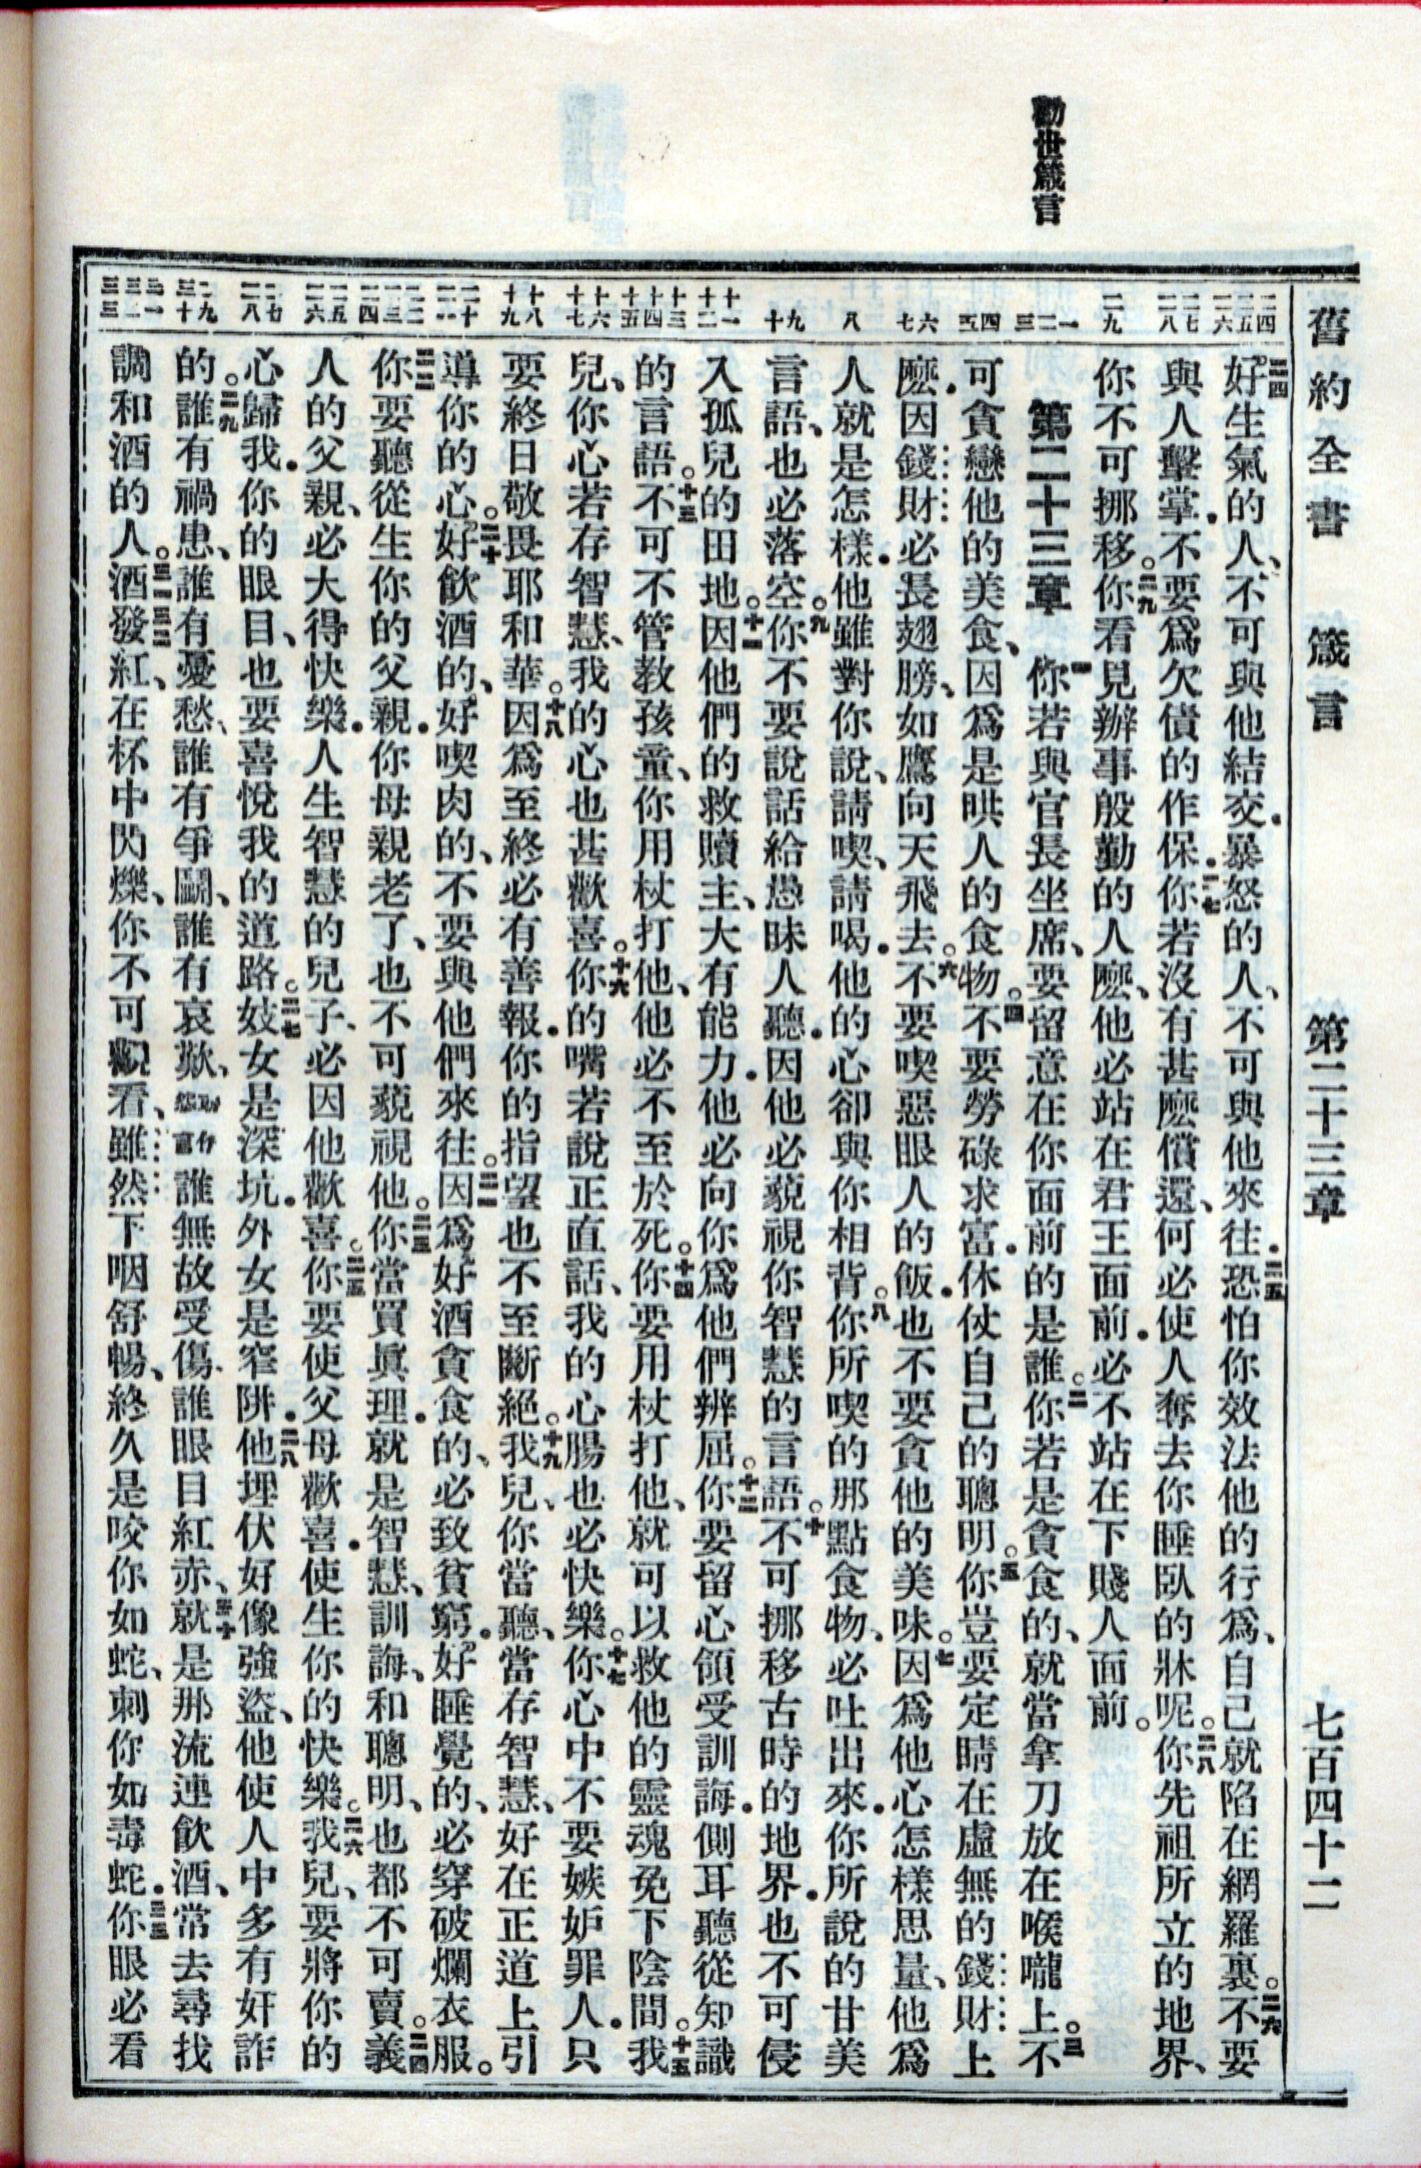 舊約全書　箴言　第二十三章　七百四十二
勸世箴言
二四 二五 二六
二七 二八
二九
一 二 三
四 五
六 七
八
九 十
十一 十二
十三 十四 十五
十六 十七
十八 十九
二十 二一
二二 二三 二四
二五 二六
二七 二八
二九 三十
三一 三二 三三
二四好生氣的人、不可與他結交．暴怒的人、不可與他來往．二五恐怕你效法他的行爲、自己就陷在網羅裏。二六不要
與人擊掌．不要爲欠債的作保．二七你若沒有甚麽償還、何必使人奪去你睡臥的牀呢。二八你先祖所立的地界、
你不可挪移。二九你看見辦事殷勤的人麽、他必站在君王面前．必不站在下賤人面前。
第二十三章　一你若與官長坐席、要留意在你面前的是誰。二你若是貪食的、就當拿刀放在喉嚨上。三不
可貪戀他的美食、因爲是哄人的食物。四不要勞碌求富．休仗自己的聰明。五你豈要定睛在虛無的錢財上
麽．因錢財必長翅膀、如鷹向天飛去。六不要喫惡眼人的飯．也不要貪他的美味。七因爲他心怎樣思量、他爲
人就是怎樣．他雖對你說、請喫、請喝．他的心卻與你相背。八你所喫的那點食物、必吐出來．你所說的甘美
言語、也必落空。九你不要說話給愚昧人聽．因他必藐視你智慧的言語。十不可挪移古時的地界．也不可侵
入孤兒的田地。十一因他們的救贖主、大有能力．他必向你爲他們辨屈。十二你要留心領受訓誨．側耳聽從知識
的言語。十三不可不管教孩童、你用杖打他、他必不至於死。十四你要用杖打他、就可以救他的靈魂免下陰間。十五我
兒、你心若存智慧、我的心也甚歡喜。十六你的嘴若說正直話、我的心腸也必快樂。十七你心中不要嫉妒罪人．只
要終日敬畏耶和華。十八因爲至終必有善報．你的指望也不至斷絕。十九我兒、你當聽、當存智慧、好在正道上引
導你的心。二十好飲酒的、好喫肉的、不要與他們來往。二一因爲好酒貪食的、必致貧窮．好睡覺的、必穿破爛衣服。
二二你要聽從生你的父親．你母親老了、也不可藐視他。二三你當買眞理．就是智慧、訓誨、和聰明、也都不可賣。二四義
人的父親、必大得快樂．人生智慧的兒子、必因他歡喜。二五你要使父母歡喜．使生你的快樂。二六我兒、要將你的
心歸我．你的眼目、也要喜悅我的道路。二七妓女是深坑．外女是窄阱．二八他埋伏好像強盜、他使人中多有奸詐
的。二九誰有禍患、誰有憂愁、誰有爭鬭、誰有哀歎、誰無故受傷、誰眼目紅赤、三十就是那流連飲酒、常去尋找
調和酒的人。三一酒發紅、在杯中閃爍、你不可觀看、雖然下咽舒暢、三二終久是咬你如蛇、刺你如毒蛇．三三你眼必看